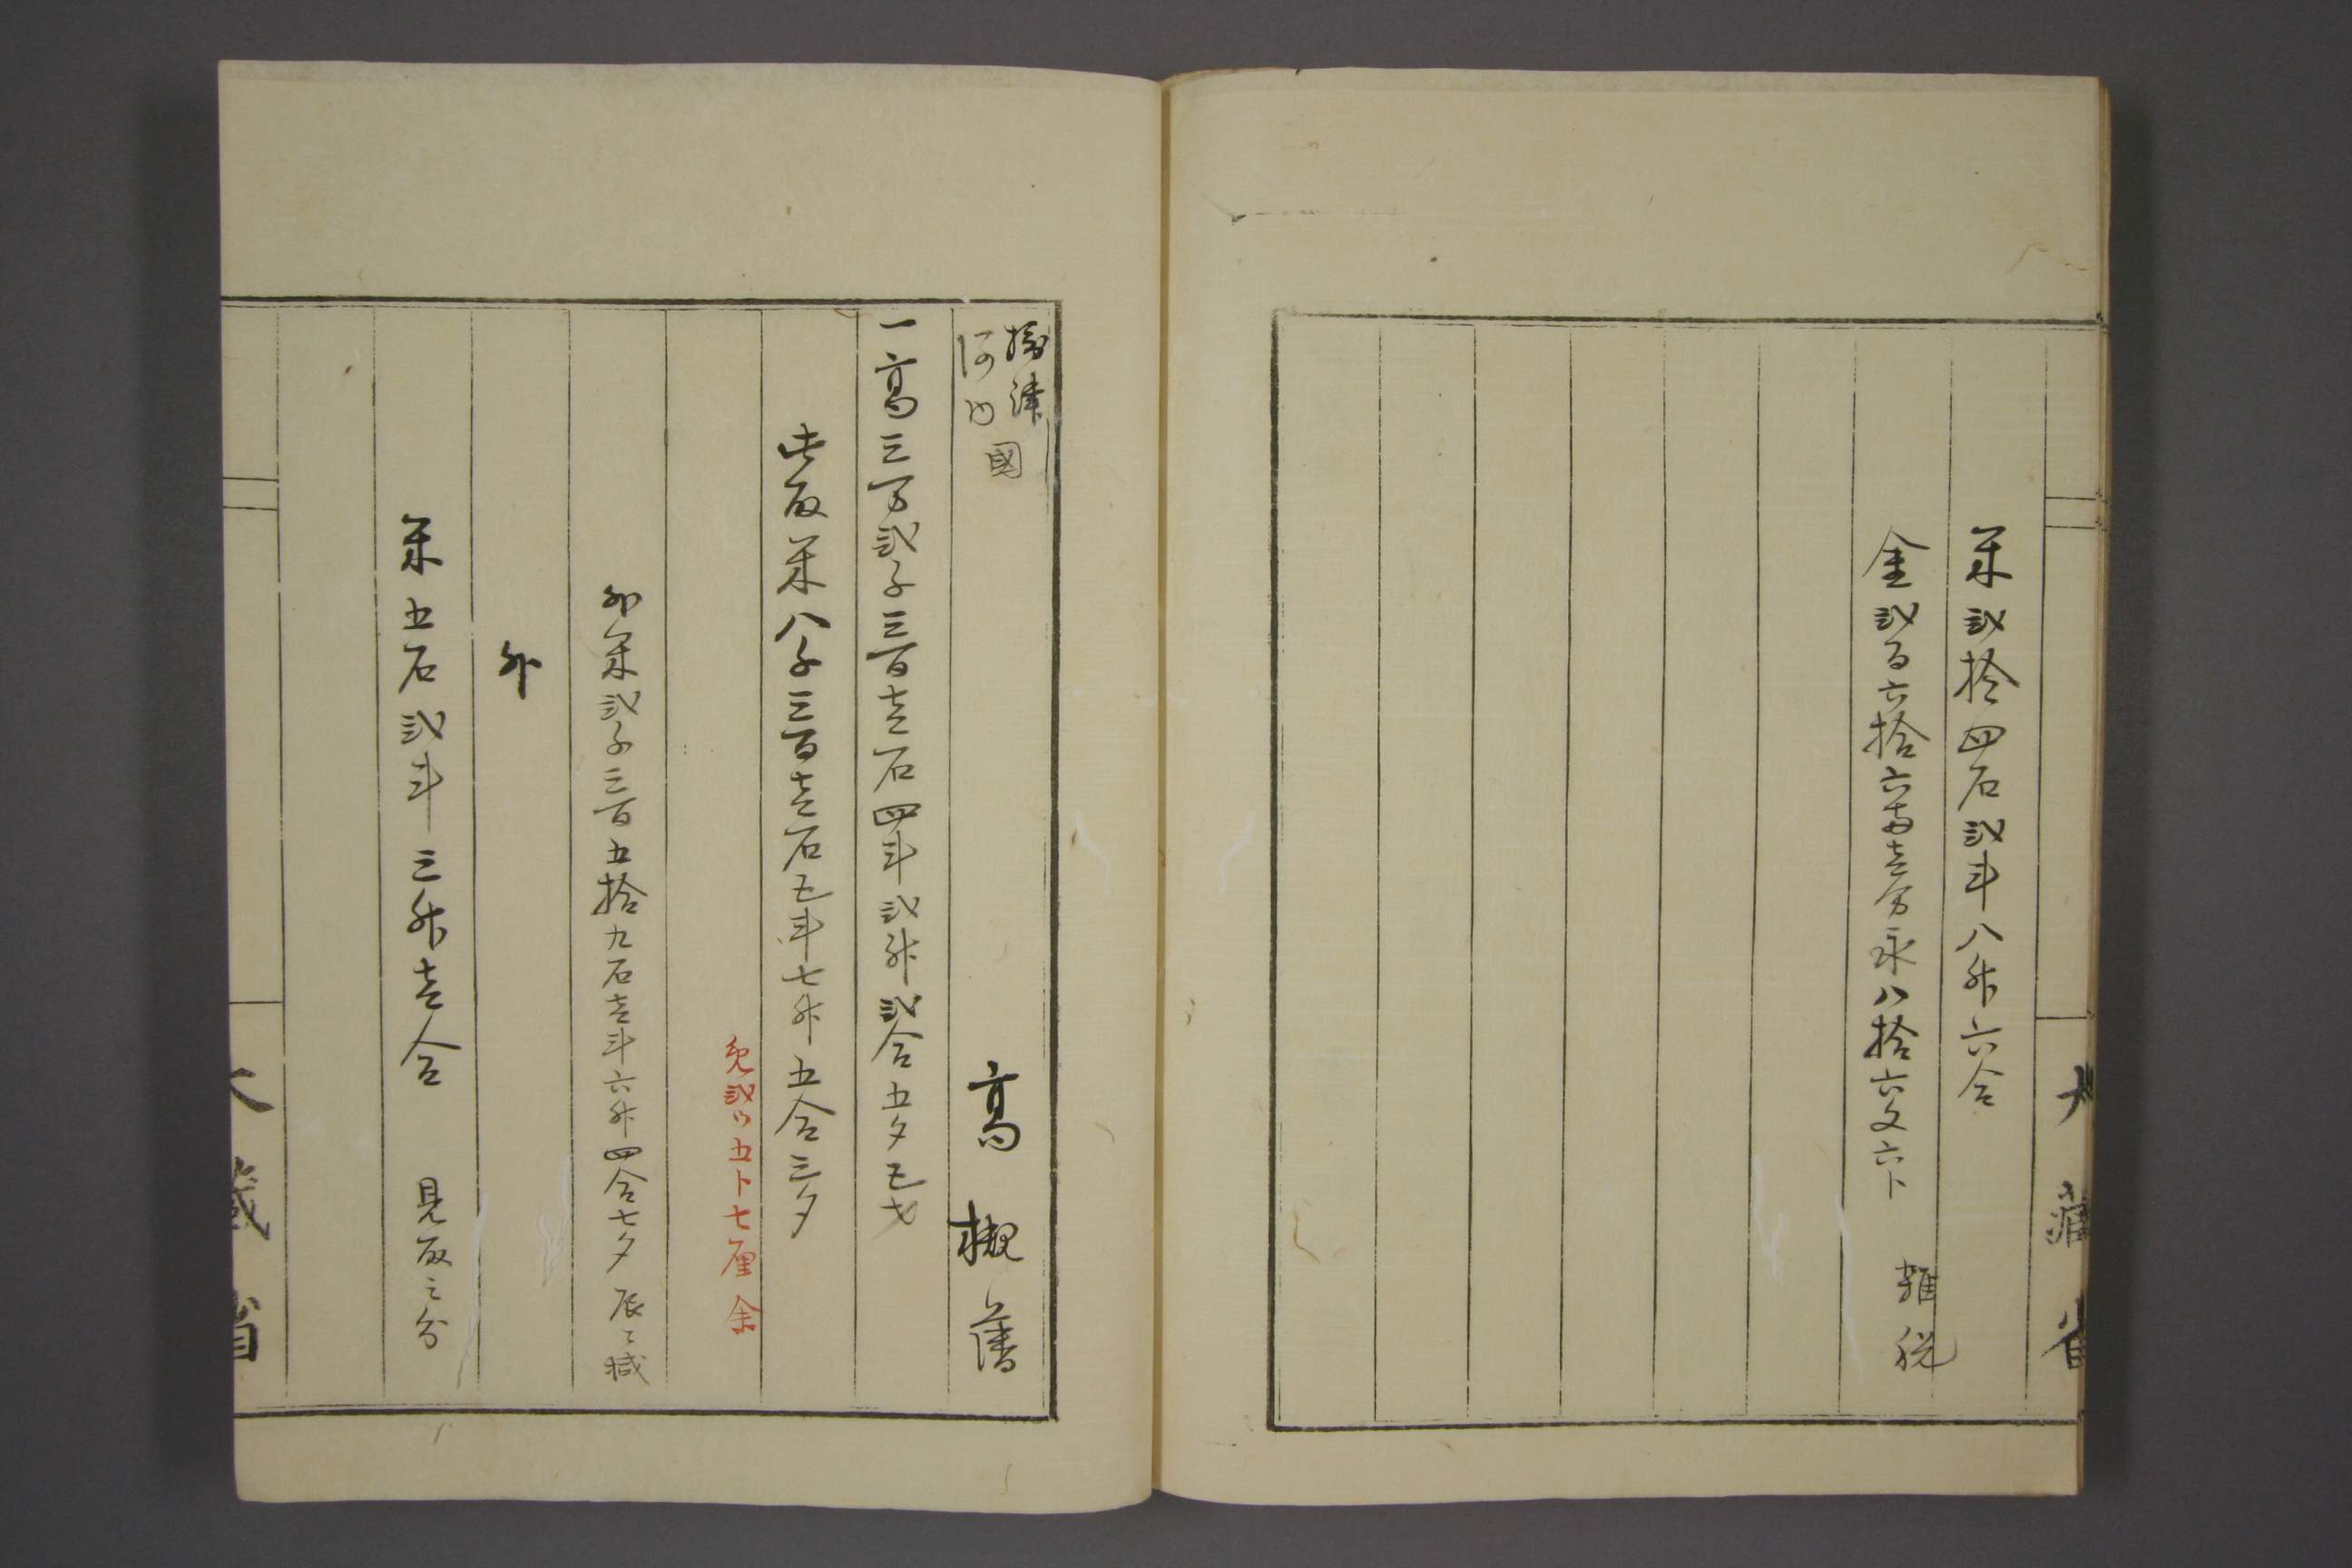 大藏省
米弐拾四石弐斗八升六合
金弐百六拾六両壱分永八拾六文六卜
雑税
摂津
河内
國
高槻藩
一高三万弐千三百壱石四斗弐升弐合五夕五才
此取米八千三百壱石五斗七升五合三夕
免弐ツ五卜七厘余
卯米弐千三百五拾九石壱斗六升四合七夕辰ニ減
外
米五石弐斗三升壱合
見取之分
大藏省